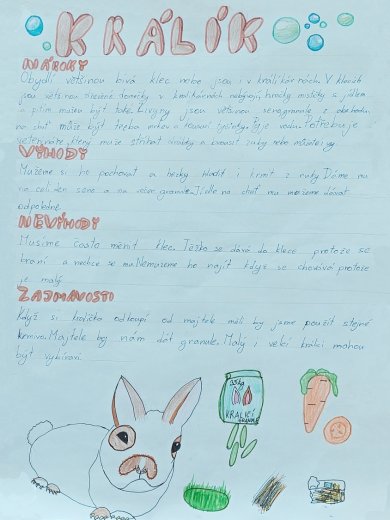 KRÁLÍK
NÁROKY
Obydlí většinou bývá klec nebo jsou i v králíkárnách. V klecích
jsou většinou dřevěné domečky v králíkárnách nebývají, mističky s jídlem
a pitím musejí být také. Živiny jsou většinou seno, granule z obchodu
na chuť může být třeba mrkev a
Pije vodu. Potřebuje
veterináře, který může stříhat drápky a zuby nebo
VÝHODY
Můžeme si ho pochovat a hezky hladit i krmit z ruky. Dáme mu
na celí den seno a na večer granule. Jídlo na chuť mu můžeme dávat
odpoledne.
NEVÍHODY
Musíme často měnit klec. Těžko se dává do klece protože se
brání a nechce se mu. Nemůžeme ho najít když se schovává protože
je malý.
ZAJMAVOSTI
Když si králíčka odkoupí od majtele měli by jsme použít stejné
krmivo. Majtele by nám dát granule. Malý i velcí králíci mohou
být vybíraví.
KRÁLIČÍ
GRANULE